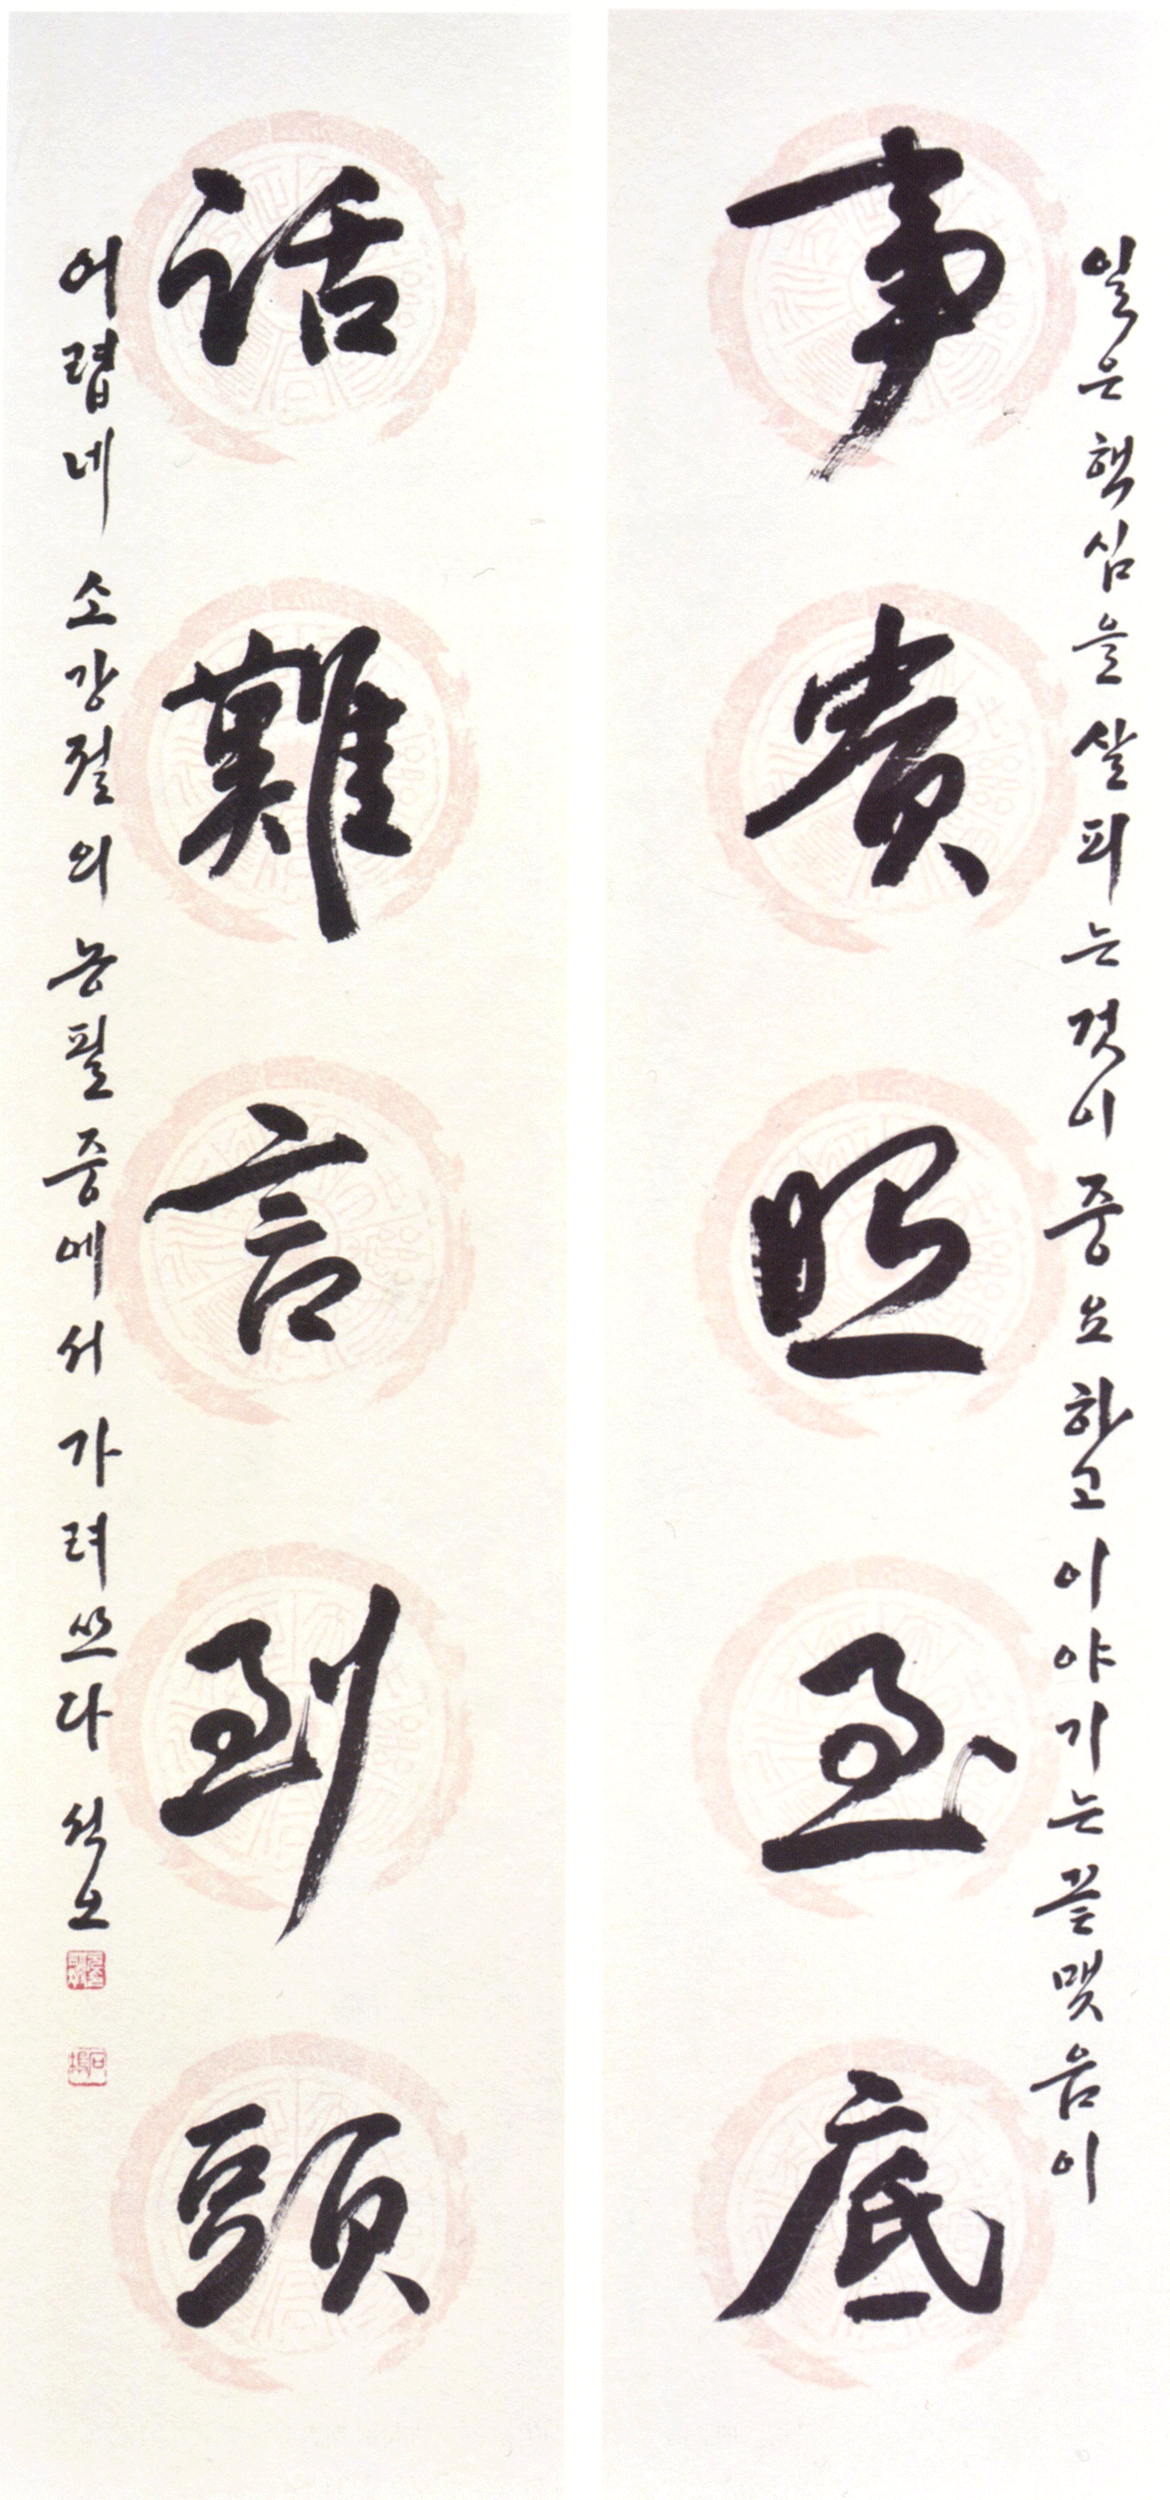 事貴照至底
일은 핵심을 살피는 것이 중요하고 이야기는 끝맺음이
話難言到頭
어렵네 소강절의 농필 중에서 가려쓰다 석오